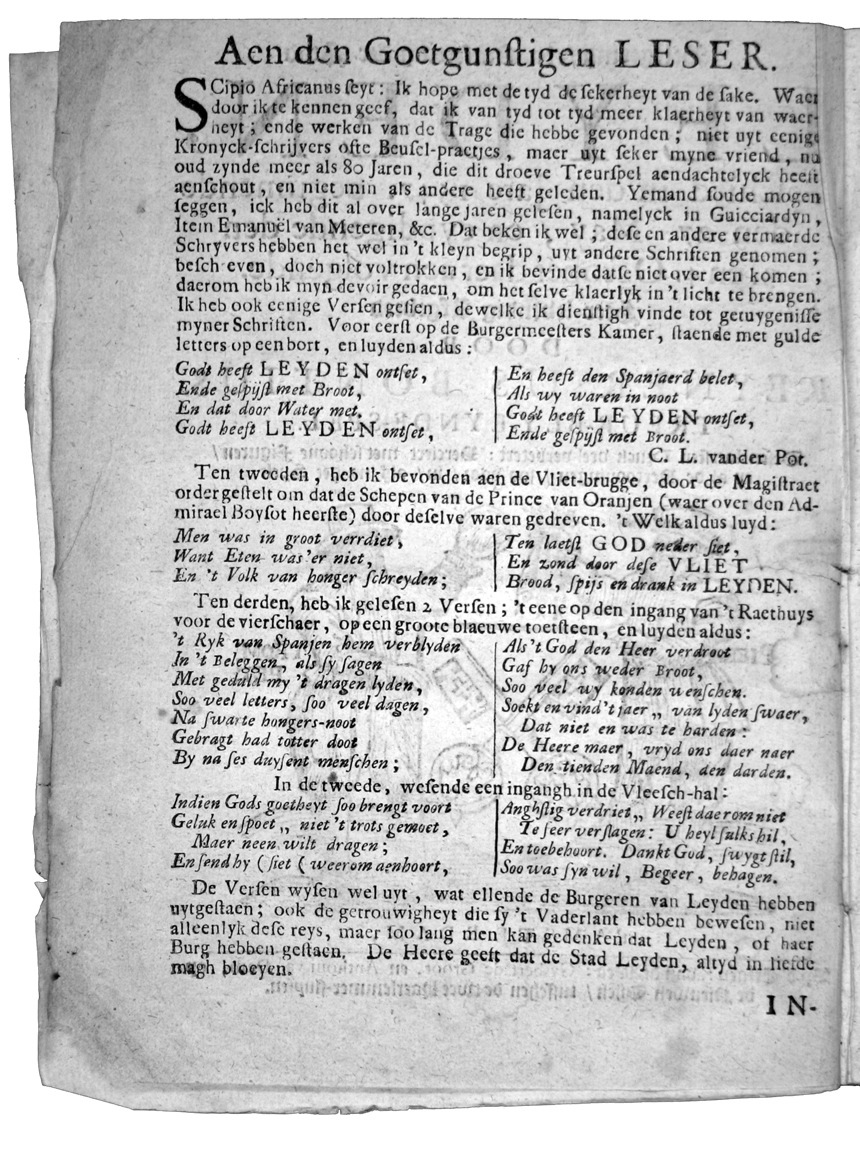 Aen den Goetgunſtigen LESER.
SCipio Africanus ſeyt: Ik hope met de tyd de ſekerheyt van de ſake. Waer
door ik te kennen geef, dat ik van tyd tot tyd meer klaerheyt van waer-
heyt; ende werken van de Trage die hebbe gevonden; niet uyt eenige
Kronyck-ſchrijvers ofte Beuſel-praetjes, maer uyt ſeker myne vriend, nu
oud zynde meer als 80 Jaren, die dit droeve Treurſpel aendachtelyck heeft
aenſchout, en niet min als andere heeft geleden. Yemand ſoude mogen
ſeggen, ick heb dit al over lange jaren geleſen, namelyck in Guicciardyn,
Item Emanuël van Meteren, &c. Dat beken ik wel; deſe en andere vermaerde
Schryvers hebben het wel in 't kleyn begrip, uyt andere Schriften genomen;
beſch even, doch niet voltrokken, en ik bevinde datſe niet over een komen;
daerom heb ik myn devoir gedaen, om het ſelve klaerlyk in 't licht te brengen.
Ik heb ook eenige Verſen geſien, dewelke ik dienſtigh vinde tot getuygeniſſe
myner Schriften. Voor eerſt op de Burgermeeſters Kamer, ſtaende met gulde
letters op een bort, en luyden aldus:
Godt heeft LEYDEN ontſet,
Ende geſpijſt met Broot,
En dat door Water met.
Godt heeft LEYDEN ontſet,
En heeft den Spanjaerd belet,
Als wy waren in noot
Godt heeft LEYDEN ontſet,
Ende geſpijſt met Broot.
C. L. vander Por.
Ten tweeden, heb ik bevonden aen de Vliet-brugge, door de Magiſtraet
order geſtelt om dat de Schepen van de Prince van Oranjen (waer over den Ad-
mirael Boyſot heerſte) door deſelve waren gedreven. 't Welk aldus luyd:
Men was in groot verrdiet,
Want Eten was'er niet,
En 't Volk van honger ſchreyden;
Ten laetſt GOD neder ſiet,
En zond door deſe VLIET
Brood, ſpijs en drank in LEYDEN.
Ten derden, heb ik geleſen 2 Verſen; 't eene op den ingang van 't Raethuys
voor de vierſchaer, op een groote blaeuwe toetſteen, en luyden aldus:
't Ryk van Spanjen hem verblyden
In 't Beleggen, als ſy ſagen
Met geduld my 't dragen lyden,
Soo veel letters, ſoo veel dagen,
Na ſwarte hongers-noot
Gebragt had totter doot
By na ſes duyſent menſchen;
Als 't God den Heer verdroot
Gaf hy ons weder Broot,
Soo veel wy konden wenſchen.
Soekt en vind 't jaer „ van lyden ſwaer,
Dat niet en was te harden:
De Heere maer, vryd ons daer naer
Den tienden Maend, den darden.
In de tweede, weſende een ingangh in de Vleeſch-hal:
Indien Gods goetheyt ſoo brengt voort
Geluk en ſpoet „ niet 't trots gemoet,
Maer neen wilt dragen;
En ſend hy (ſiet ( weerom aenhoort,
Anghſtig verdriet „ Weeſt daerom niet
Te ſeer verſlagen: U heyl ſulks hil,
En toebehoort. Dankt God, ſwygt ſtil,
Soo was ſyn wil, Begeer, behagen.
De Verſen wyſen wel uyt, wat ellende de Burgeren van Leyden hebben
uytgeſtaen; ook de getrouwigheyt die ſy 't Vaderlant hebben beweſen, niet
alleenlyk deſe reys, maer ſoo lang men kan gedenken dat Leyden, of haer
Burg hebben geſtaen. De Heere geeft dat de Stad Leyden, altyd in liefde
magh bloeyen.
IN-